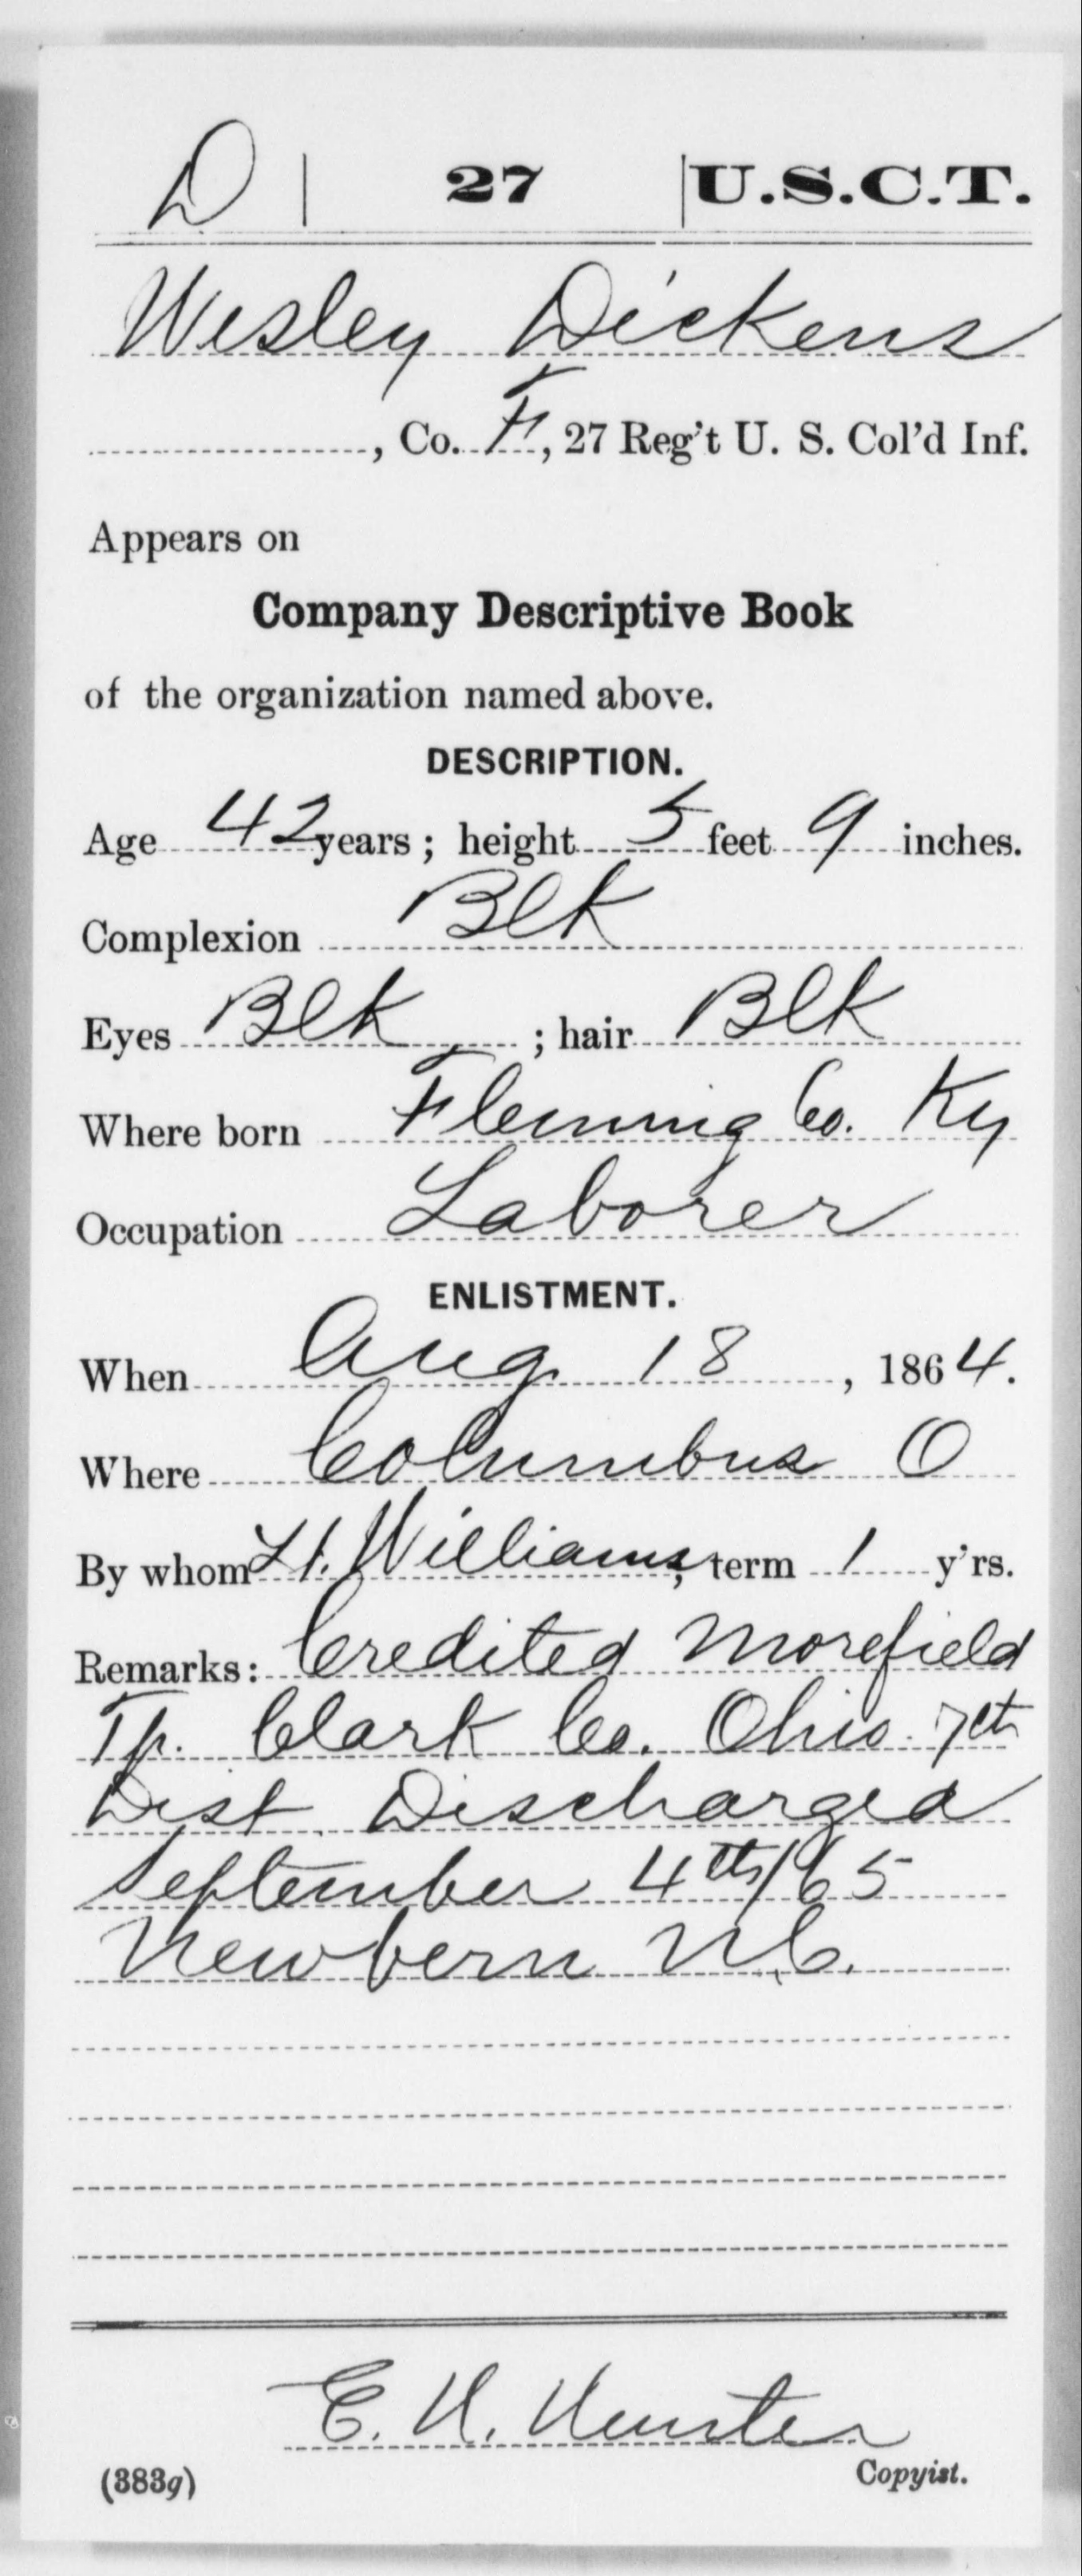 D | 27 | U.S.C.T.
Wesley Dickens
, Co. F, 27 Reg't U. S. Col'd Inf.
Appears on
Company Descriptive Book
of the organization named above.
DESCRIPTION.
Age 42 years; height 5 feet 9 inches.
Complexion Blk
Eyes Blk ; hair Blk
Where born Fleming Co. Ky
Occupation Laborer
ENLISTMENT.
When Aug 18, 1864.
Where Columbus O
By whom Lt. Williams, term 1 y'rs.
Remarks: Credited Morefield
Tp. Clark Co. Ohio. 7th
Dist Discharged
September 4th/65
Newbern N.C.
E. H. Hunter
(383g) Copyist.